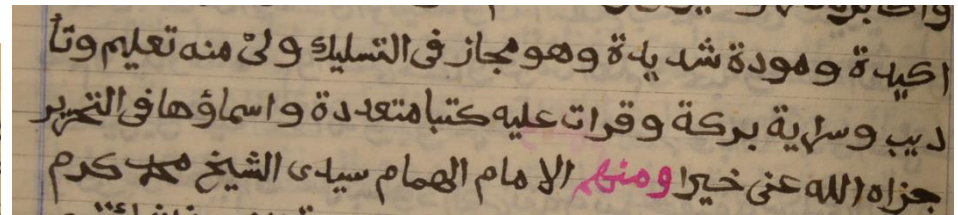 اكيدة ومودة شديدة وهو مجاز فى التسليك ولى منه تعليم وتأ
ديب وسراية بركة وقرات عليه كتبا متعددة واسماؤها فى التحرير
جزاه الله عنى خيرا ومنهم الامام الهمام سيدى الشيخ محمد كرم